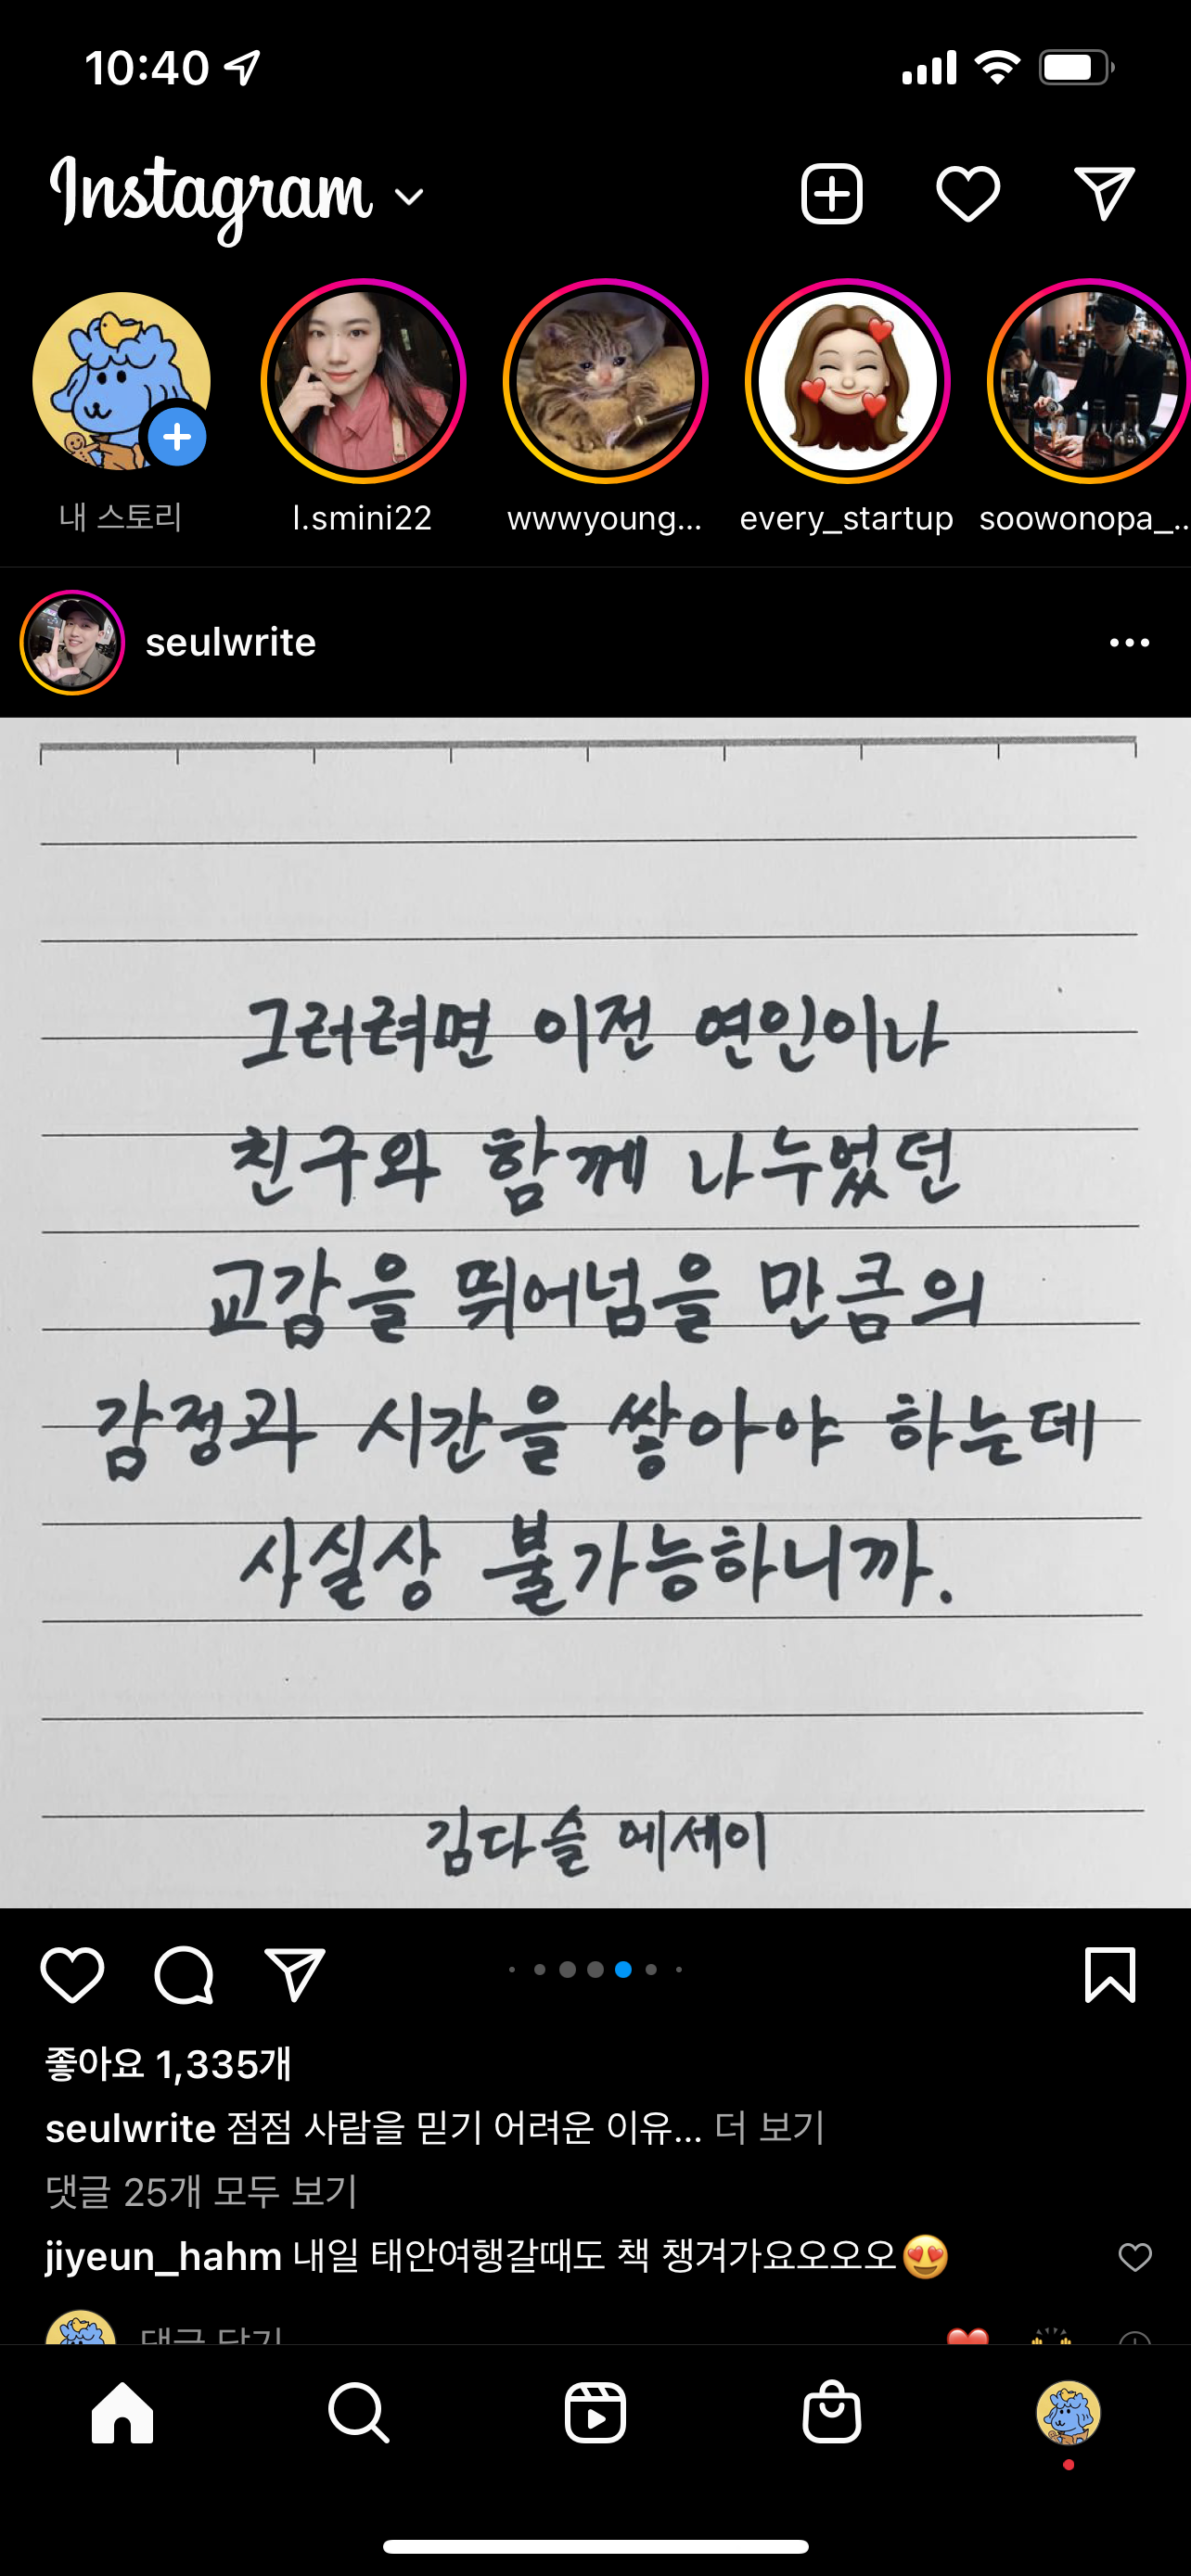 10:40
Instagram
내 스토리
l.smini22
wwwyoung...
every_startup
soowonopa_...
seulwrite
그러려면 이전 연인이나
친구와 함께 나누었던
교감을 뛰어넘을 만큼의
감정과 시간을 쌓아야 하는데
사실상 불가능하니까.
김다슬 에세이
좋아요 1,335개
seulwrite 점점 사람을 믿기 어려운 이유... 더 보기
댓글 25개 모두 보기
jiyeun_hahm 내일 태안여행갈때도 책 챙겨가요오오오😍
댓글 달기